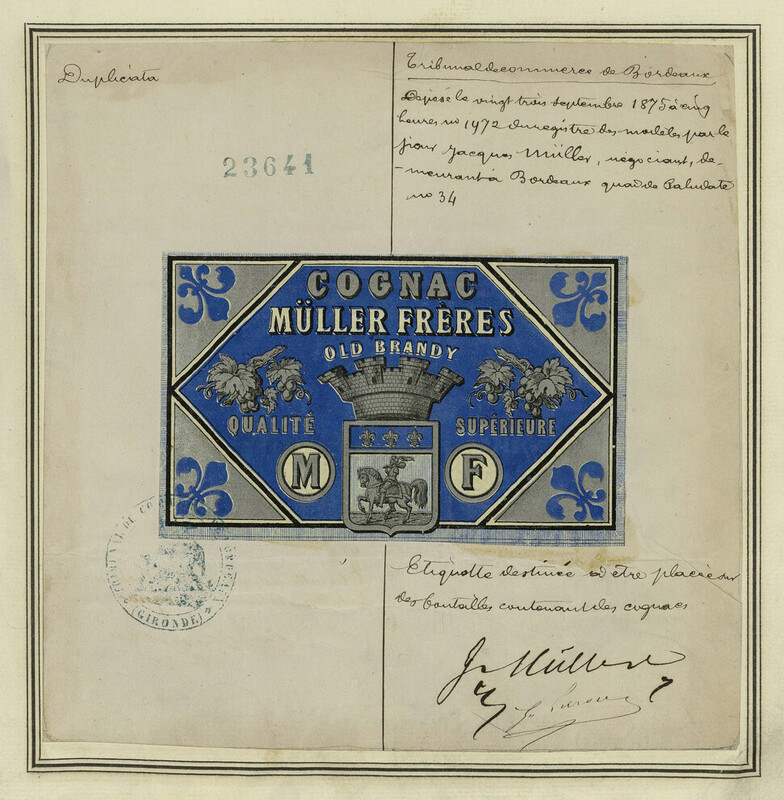 Dupliciata
Tribunal de commerce de Bordeaux
Déposé le vingt trois septembre 1875 à cinq
heures no 1972 du registre des modèles par le
sieur Jacques Müller, négociant, de-
-meurant à Bordeaux quai de Paludate
no 34
23641
COGNAC
MÜLLER FRÈRES
OLD BRANDY
QUALITÉ SUPÉRIEURE
M F
TRIBUNAL DE COMMERCE
(GIRONDE)
Etiquette destinée à être placée sur
des bouteilles contenant des cognacs
J. Müller